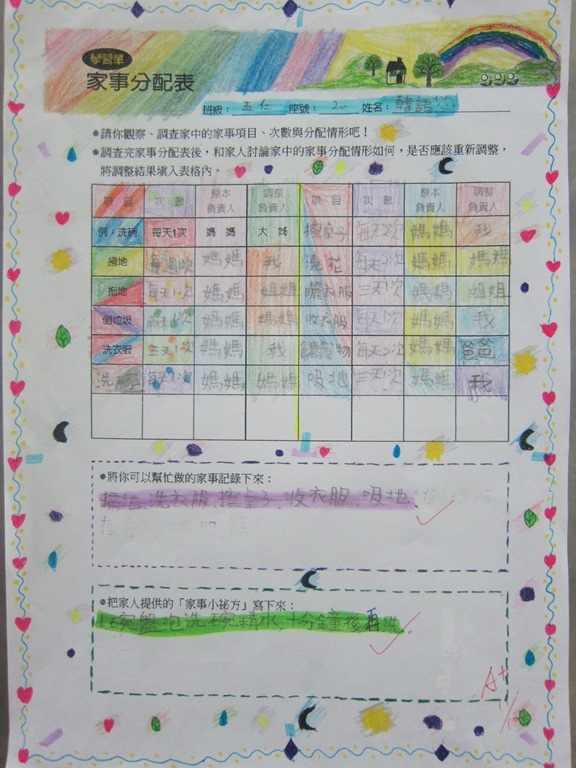 學習單
家事分配表
班級: 五仁 座號: 20 姓名: 韓語
●請你觀察、調查家中的家事項目、次數與分配情形吧！
●調查完家事分配表後，和家人討論家中的家事分配情形如何，是否應該重新調整，
將調整結果填入表格內。
項目 次數 原本負責人 調整負責人 項目 次數 原本負責人 調整負責人
例：洗碗 每天1次 媽媽 大姊 擦桌子 每天2次 媽媽 我
掃地 每週1次 媽媽 我 澆花 每天2次 媽媽 媽媽
拖地 每天1次 媽媽 姐姐 曬衣服 三天1次 媽媽 姐姐
倒垃圾 每天1次 媽媽 媽媽 收衣服 每天1次 媽媽 我
洗衣服 三天1次 媽媽 我 物 每天2次 媽媽 爸爸
洗 每天1次 媽媽 媽媽 吸地 三天1次 媽媽 我
●將你可以幫忙做的家事記錄下來：
掃地、洗衣服、擦桌子、收衣服、吸地、
●把家人提供的「家事小祕方」寫下來：
碗盤泡洗碗精水十分鐘後再洗
A+